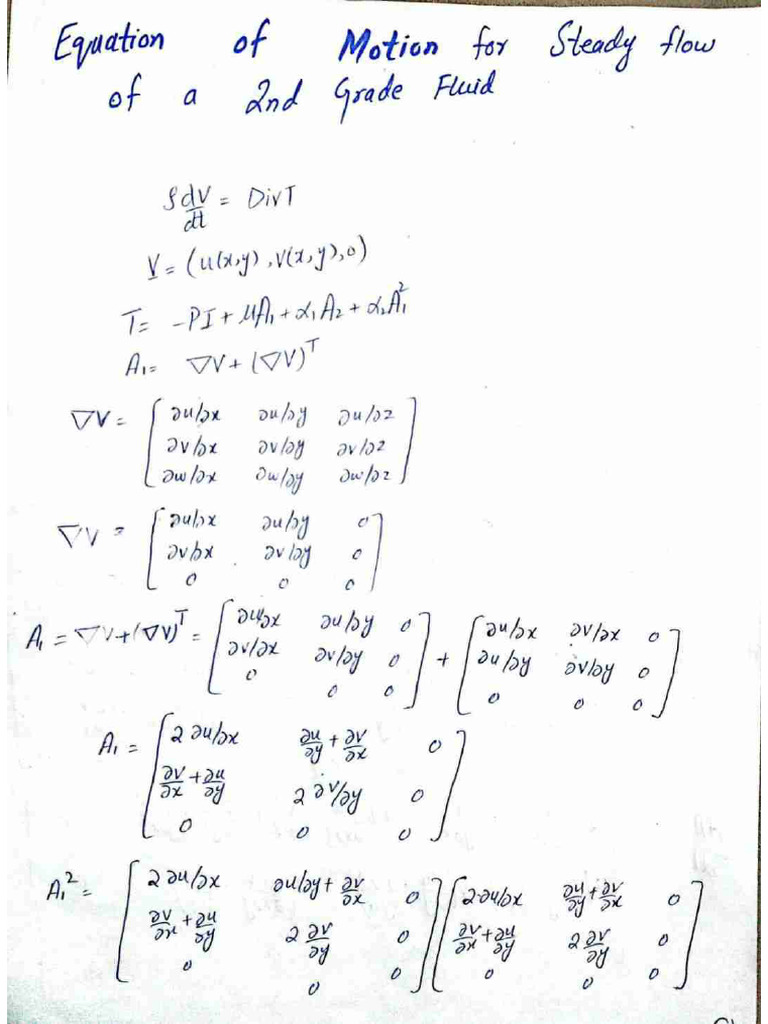 Equation of Motion for Steady flow
of a 2nd Grade Fluid
ρdV/dt = DivT
V = (u(x,y), v(x,y), 0)
T = -PI + μA₁ + α₁A₂ + α₂A₁²
A₁ = ∇V + (∇V)ᵀ
∇V = [ ∂u/∂x ∂u/∂y ∂u/∂z
∂v/∂x ∂v/∂y ∂v/∂z
∂w/∂x ∂w/∂y ∂w/∂z ]
∇V = [ ∂u/∂x ∂u/∂y 0
∂v/∂x ∂v/∂y 0
0 0 0 ]
A₁ = ∇V + (∇V)ᵀ = [ ∂u/∂x ∂u/∂y 0 ] + [ ∂u/∂x ∂v/∂x 0 ]
[ ∂v/∂x ∂v/∂y 0 ] [ ∂u/∂y ∂v/∂y 0 ]
[ 0 0 0 ] [ 0 0 0 ]
A₁ = [ 2 ∂u/∂x ∂u/∂y + ∂v/∂x 0
∂v/∂x + ∂u/∂y 2 ∂v/∂y 0
0 0 0 ]
A₁² = [ 2 ∂u/∂x ∂u/∂y + ∂v/∂x 0 ] [ 2 ∂u/∂x ∂u/∂y + ∂v/∂x 0 ]
[ ∂v/∂x + ∂u/∂y 2 ∂v/∂y 0 ] [ ∂v/∂x + ∂u/∂y 2 ∂v/∂y 0 ]
[ 0 0 0 ] [ 0 0 0 ]